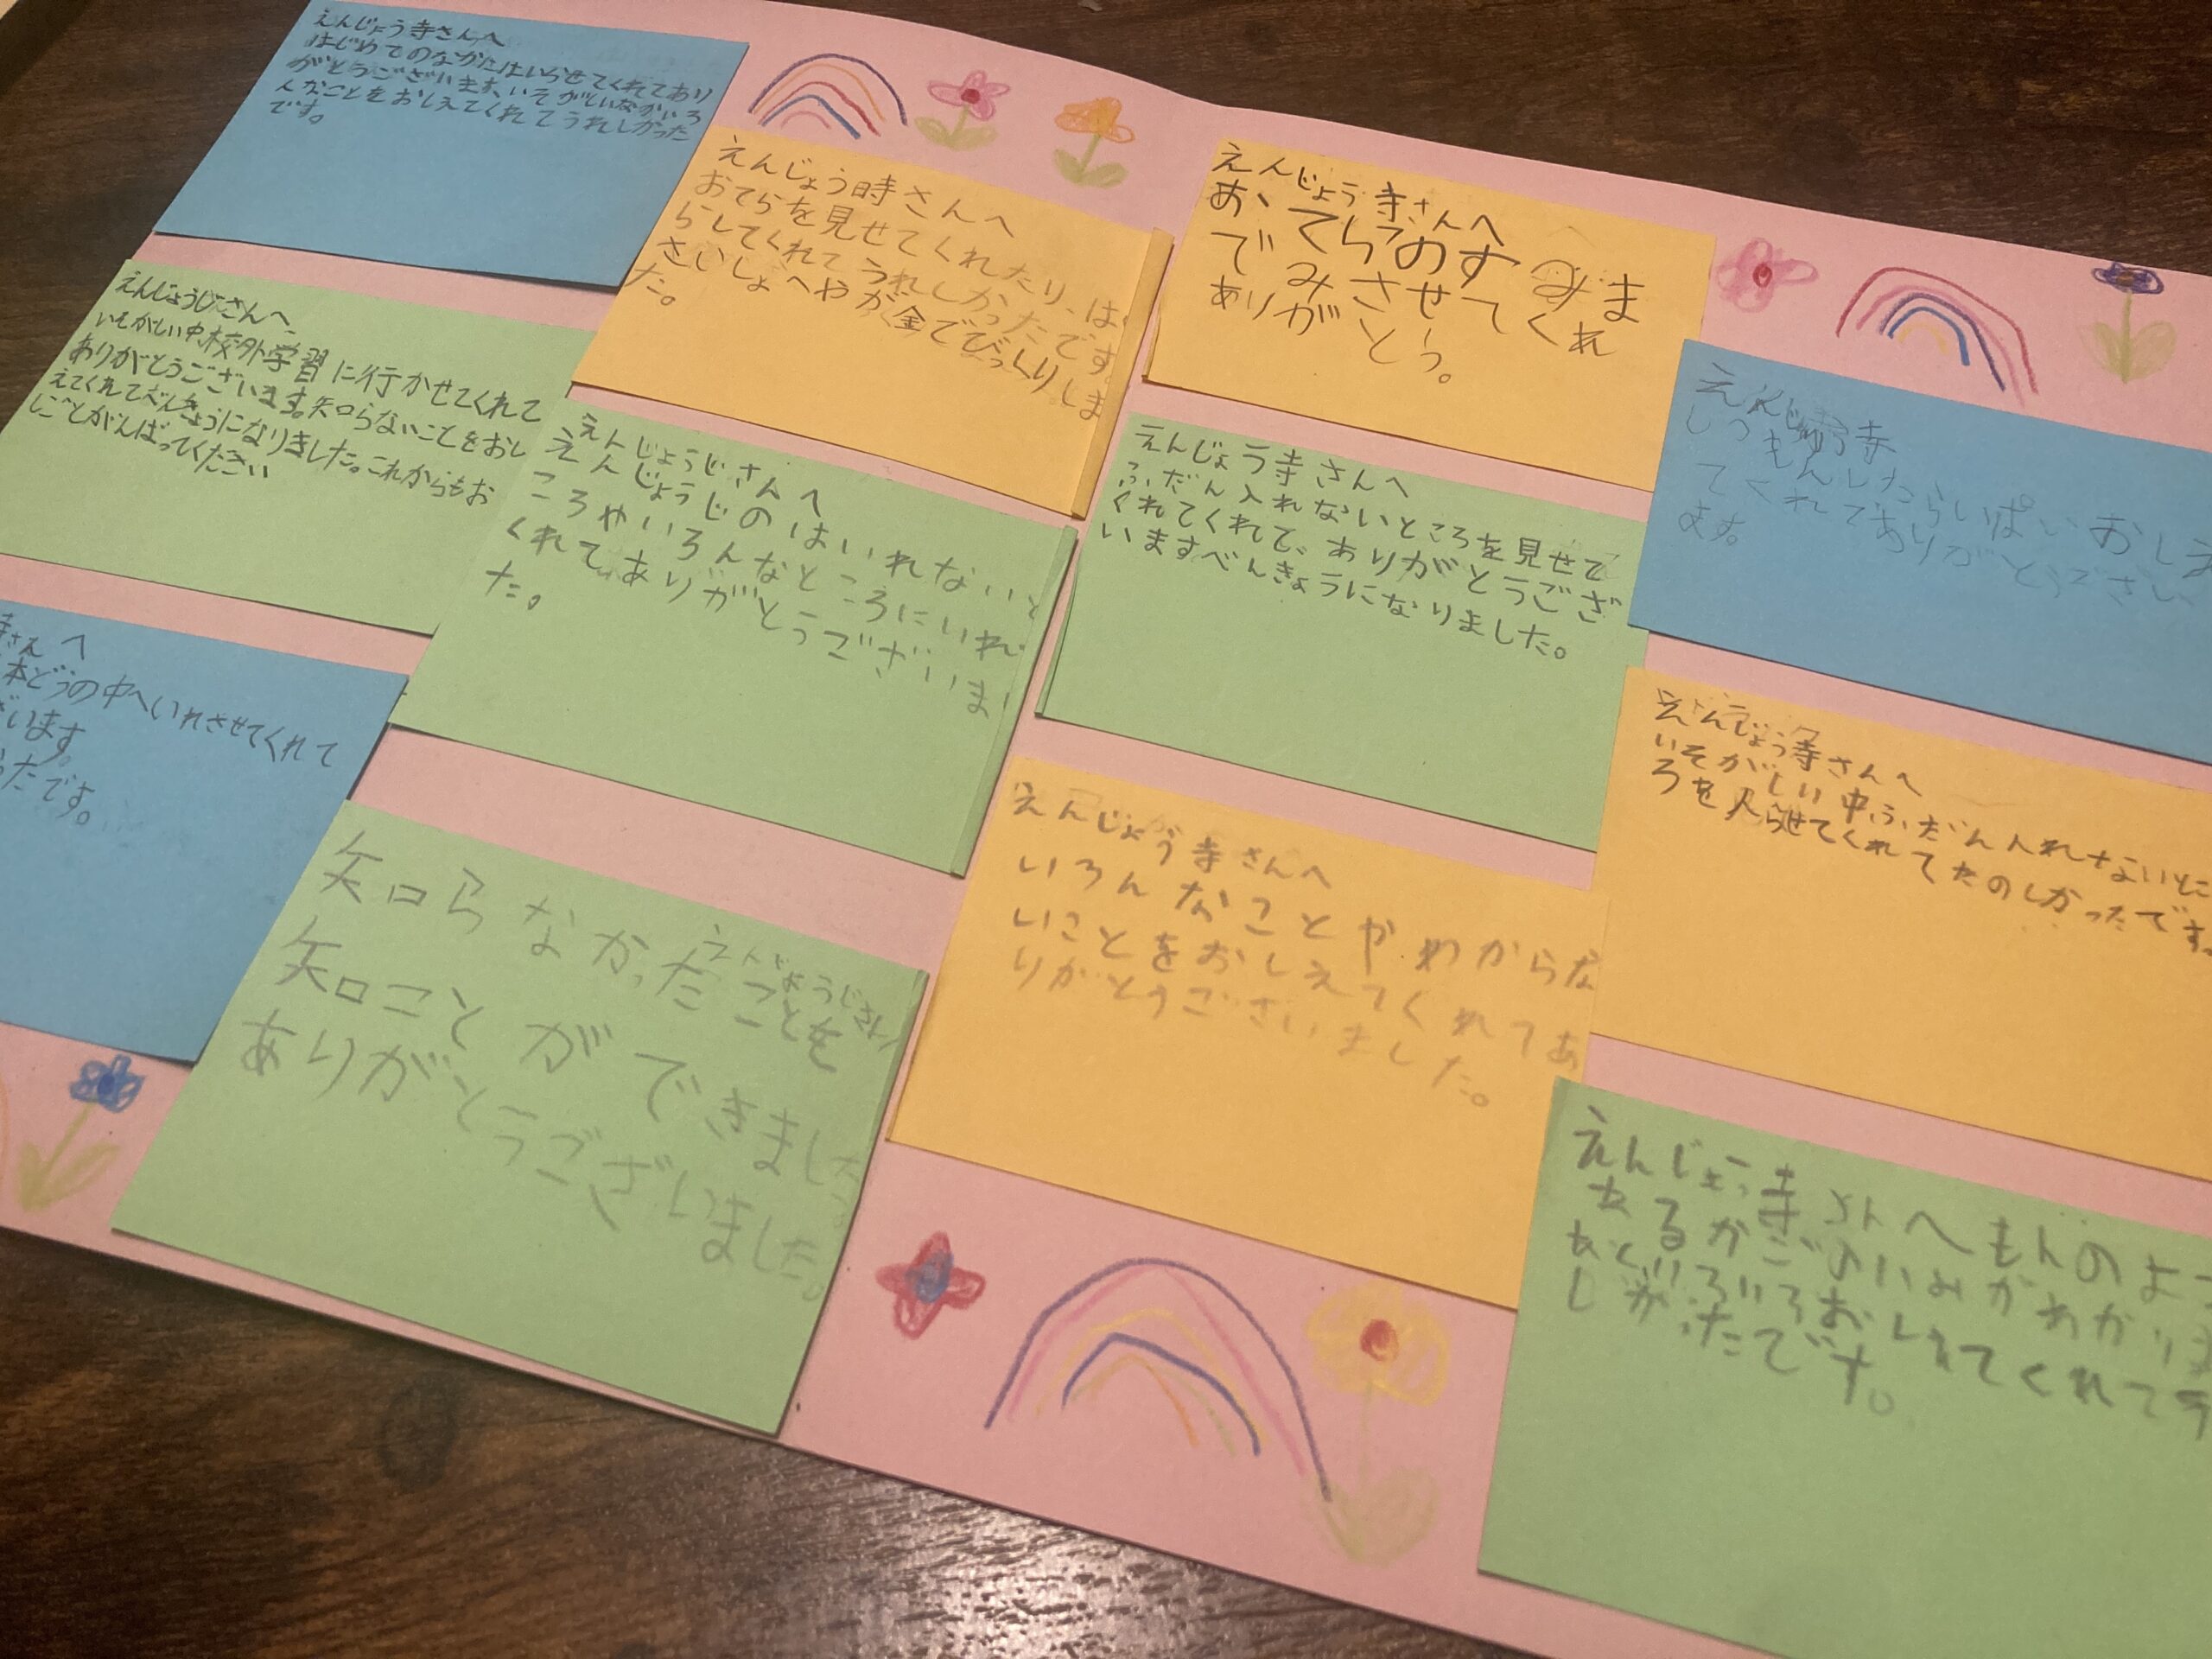 えんじょう寺さんへ
はじめてのなかにはいらせてくれてあり
がとうございます、いそがしいなかいろ
んなことをおしえてくれてうれしかった
です。
えんじょう時さんへ
おてらを見せてくれたり、は
らしてくれてうれしかったです。
さいしょへやが金でびっくりしまし
た。
えんじょう寺さんへ
で みさせてくれ
ありがとう。
えんじょうじさんへ
いそがしい中校外学習に行かせてくれて
ありがとうございます。知らないことをおし
えてくれてべんきょうになりました。これからもお
しごとがんばってください
えんじょうじさんへ
えんじょうじのはいれないと
ころやいろんなところにいれ
くれてありがとうございまし
た。
えんじょう寺さんへ
ふだん入れないところを見せて
くれてくれて、ありがとうござ
いますべんきょうになりました。
えんじょう寺
しつもんしたらいぱいおしえ
てくれてありがとうござい
ます。
寺さんへ
本どうの中へいれさせてくれて
ざいます。
ったです。
えんじょうじさんへ
知らなかったことを
知ことができました
ありがとうございました。
えんじょう寺さんへ
いろんなことやわからな
いことをおしえてくれてあ
りがとうございました。
えんじょう寺さんへ
いそがしい中ふだん入れないとこ
ろを入らせてくれてたのしかったです。
えんじょう寺さんへもんのよこ
あるかごのいみがわかり
いろいろおしえてくれてう
しかったです。